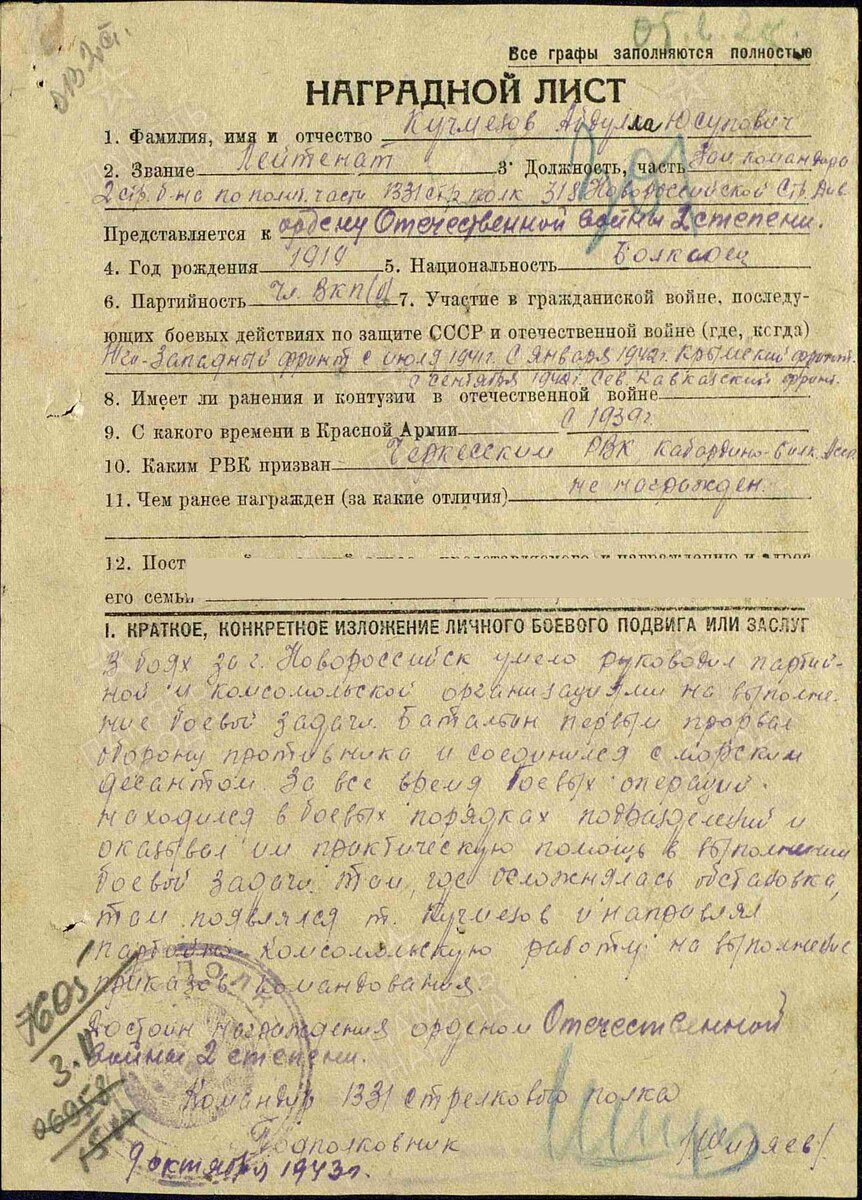 Все графы заполняются полностью
НАГРАДНОЙ ЛИСТ
1. Фамилия, имя и отчество Кучмезов Абдулла Юсупович
2. Звание Лейтенат 3. Должность, часть Зам. командира
2 стр. б-на по полит. части 1331 стр. полк 318 Новороссийской Стр. Див.
Представляется к ордену Отечественной войны 2 степени.
4. Год рождения 1919 5. Национальность Болкарец
6. Партийность Чл. ВКП(б) 7. Участие в гражданской войне, последу-
ющих боевых действиях по защите СССР и отечественной войне (где, когда)
Юго-Западный фронт с июля 1941г. С января 1942г. Крымский фронт.
с сентября 1942г. Сев. Кавказский фронт.
8. Имеет ли ранения и контузии в отечественной войне
9. С какого времени в Красной Армии С 1939г.
10. Каким РВК призван Черкесским РВК Кабардино-Балк.
11. Чем ранее награжден (за какие отличия) не награжден.
12. Пост представляемого к награждению и адрес
его семьи
I. КРАТКОЕ, КОНКРЕТНОЕ ИЗЛОЖЕНИЕ ЛИЧНОГО БОЕВОГО ПОДВИГА ИЛИ ЗАСЛУГ
В боях за г. Новороссийск умело руководил партий-
ной и комсомольской организациями на выполне-
ние боевой задачи. Батальон первым прорвал
оборону противника и соединился с морским
десантом. За все время боевых операций
находился в боевых порядках подразделений и
оказывал им практическую помощь в выполнении
боевой задачи. Там, где осложнялась обстановка,
там появлялся т. Кучмезов и направлял
партийно комсомольскую работу на выполнение
приказов командования.
Достоин награждения орденом Отечественной
войны 2 степени.
Командир 1331 стрелкового полка
Подполковник /Ширяев/
9 октября 1943г.
7605
3.11
06958